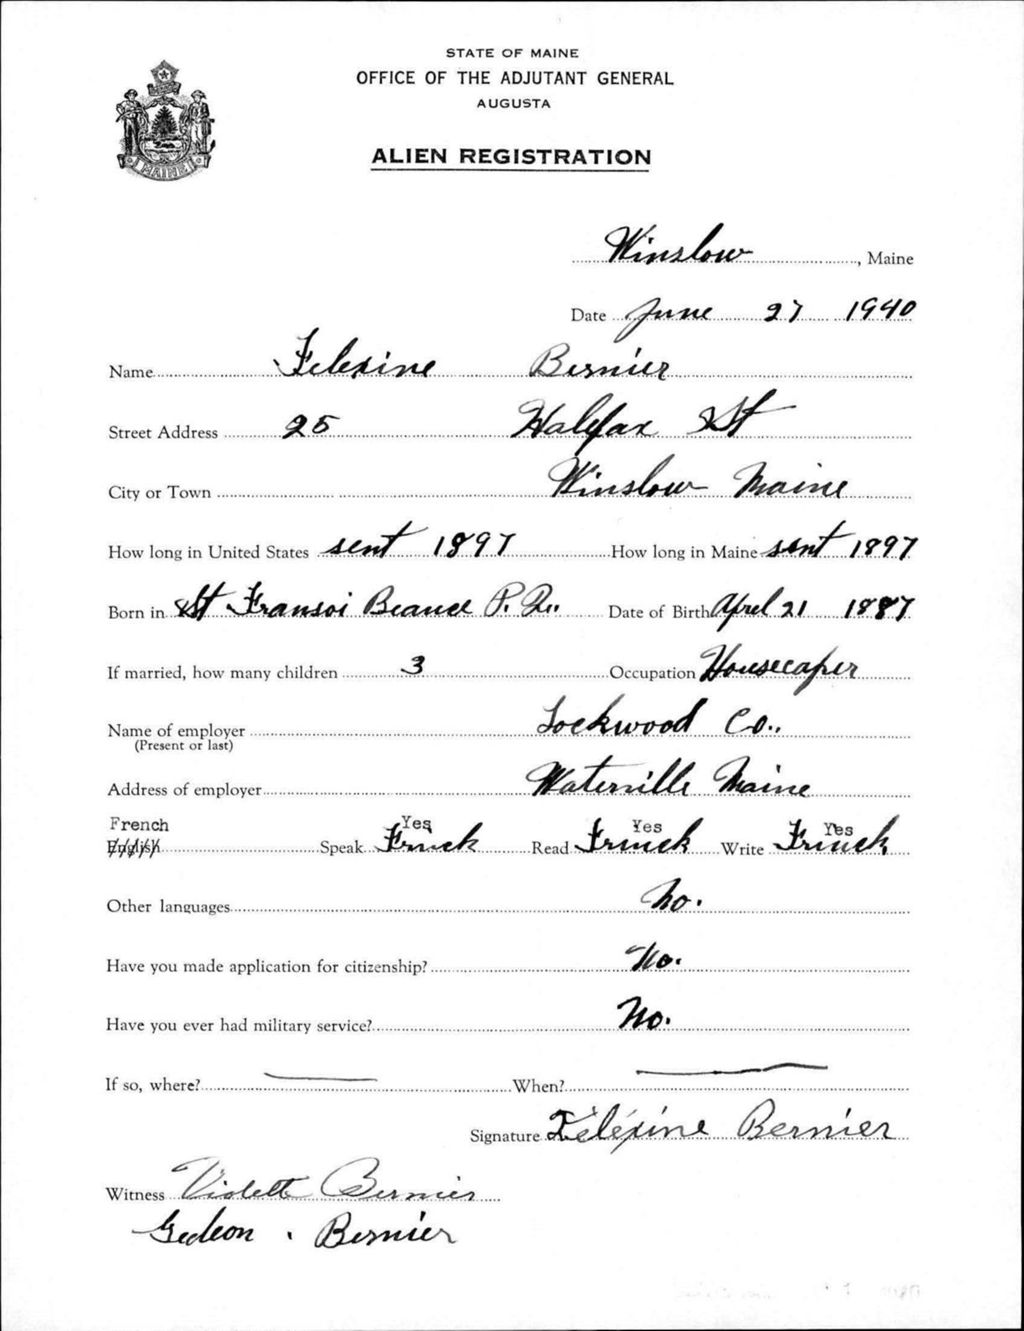 STATE OF MAINE
OFFICE OF THE ADJUTANT GENERAL
AUGUSTA
ALIEN REGISTRATION
MAINE
Winslow, Maine
Date June 27 1940
Name Felexine Bernier
Street Address 25 Halifax St
City or Town Winslow Maine
How long in United States sent 1897 How long in Maine sent 1897
Born in St Fransoi Beauce P. Q.. Date of Birth Aprel 21 1887
If married, how many children 3 Occupation Housecaper
Name of employer Lockwood Co..
(Present or last)
Address of employer Waterville Maine
French Yes Yes Yes
English Speak Frnch Read French Write French
Other languages No.
Have you made application for citizenship? No.
Have you ever had military service? No.
If so, where? — When? —
Signature Féléxine Bernier
Witness Violette Bernier
Gedeon . Bernier